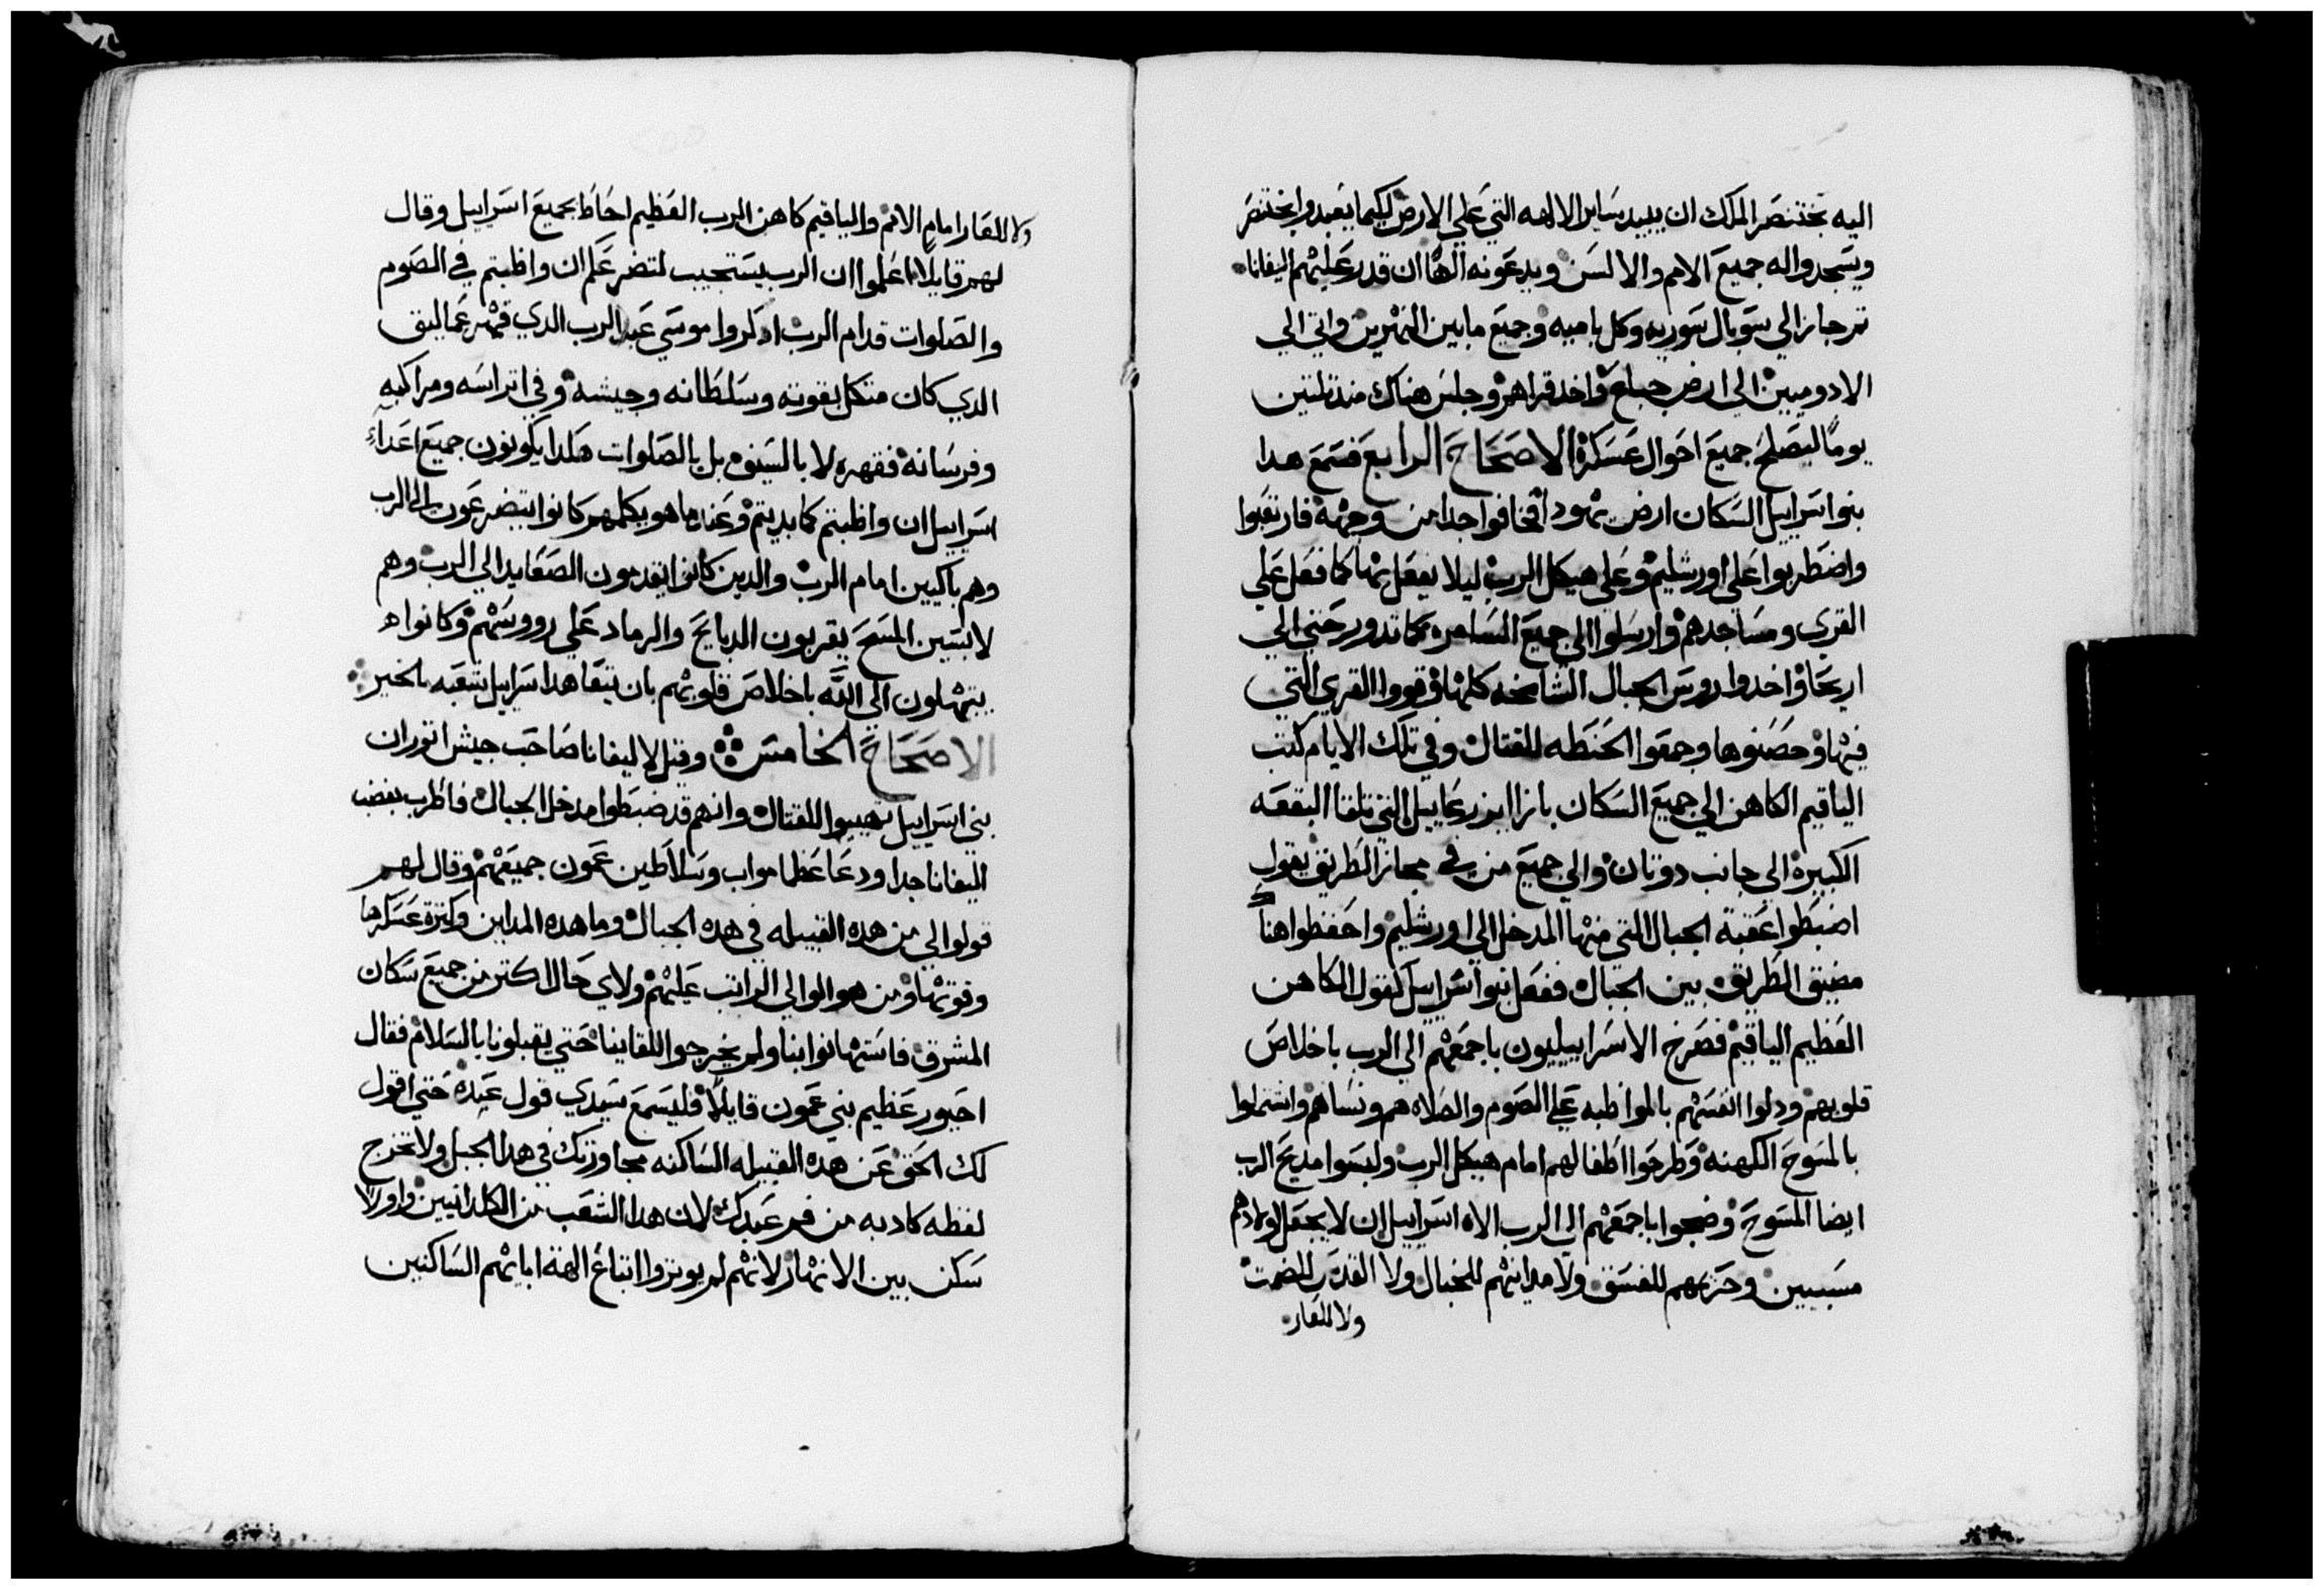 اليه بختنصر الملك ان يبيد ساير الالهه التي علي الارض لكيما يعبدوا بختنصر
ويسجدوا له جميع الامم والالسن ويدعونه الها ان قدر عليهم اليفانا
ثم جاز الي سوبال سوريه وكل باميه وجميع مابين النهرين واتي الي
الادوميين الي ارض جباع واخد قراهم وجلس هناك مند تلتين
يوما ليصلح جميع احوال عسكره الاصحاح الرابع فسمع هدا
بنوا سراييل السكان ارض يهودا فخافوا جدا من وجهه فارتعبوا
واضطربوا علي اورشليم وعلي هيكل الرب ليلا يفعل بها كما فعل علي
القري ومساجدهم وارسلوا الي جميع السامره كما تدور حتي الي
اريحا واخدوا روس الجبال الشامخه كلها وقووا القري التي
فيها وحصنوها وجمعوا الحنطه للقتال وفي تلك الايام كتب
الياقيم الكاهن الي جميع السكان بازا ايزرعاييل التي تلقا البقعه
الكبيره الي جانب دوتان والي جميع من في مجاز الطريق يقول
اضبطوا عقبة الجبال التي منها المدخل الي اورشليم واحفظوا هناك
مضيق الطريق بين الجبال ففعل بنوا اسراييل كقول الكاهن
العظيم الياقيم فصرخ الاسراييليون باجمعهم الي الرب باخلاص
قلوبهم ودلوا انفسهم بالمواظبه علي الصوم والصلاه هم ونساهم واشتملوا
بالمسوح الكهنه وطرحوا اطفالهم امام هيكل الرب ولبسوا مدبح الرب
ايضا المسوح وضجوا باجمعهم الي الرب الاه اسراييل ان لا يجعل اولادهم
مسبيين وحزبهم للفسق ولا مداينهم للخبال ولا القدس للضمت
ولا للعار
ولا للعار امام الامم والياقيم كاهن الرب العظيم احاط بجميع اسراييل وقال
لهم قايلا اعلموا ان الرب يستجيب لتضرعكم ان واظبتم في الصوم
والصلوات قدام الرب ادكروا موسي عبد الرب الدي قهر عماليق
الدي كان متكل بقوته وسلطانه وجيشه وفي اتراسه ومراكبه
وفرسانه فقهره لا بالسيف بل بالصلوات هكدا يكونون جميع اعداء
اسراييل ان واظبتم كما بديتم وعند ما هو يكلمهم كانوا يتضرعون الي الرب
وهم باكيين امام الرب والدين كانوا يقدمون الصعايد الي الرب وهم
لابسين المسح يقربون الدبايح والرماد علي رووسهم وكانوا
يبتهلون الي الله باخلاص قلوبهم بان يتعاهد اسراييل شعبه بالخير
الاصحاح الخامس وقيل لاليفانا صاحب جيش اتور ان
بني اسراييل تهيبوا للقتال وانهم قد ضبطوا مدخل الجبال فاظرب بغضب
اليفانا جدا ودعا عظما مواب وسلاطين عمون جميعهم وقال لهم
قولوا لي من هده القبيله في هده الجبال وما هده المداين وكترة عسكرها
وقوتها ومن هو الوالي الراتب عليهم ولاي حال اكتر من جميع سكان
المشرق فاستهانوا بنا ولم يخرجوا للقاينا حتي يقبلونا بالسلام فقال
احيور عظيم بني عمون قايلا فليسمع سيدي قول عبده حتي اقول
لك الحق عن هده القبيله الساكنه مجاورتك في هدا الجبل ولا تخرج
لفظه كادبه من فم عبدك لان هدا الشعب من الكلدانيين واولا
سكن بين الانهار لانهم لم يوتروا اتباع الهة اباتهم الساكنين